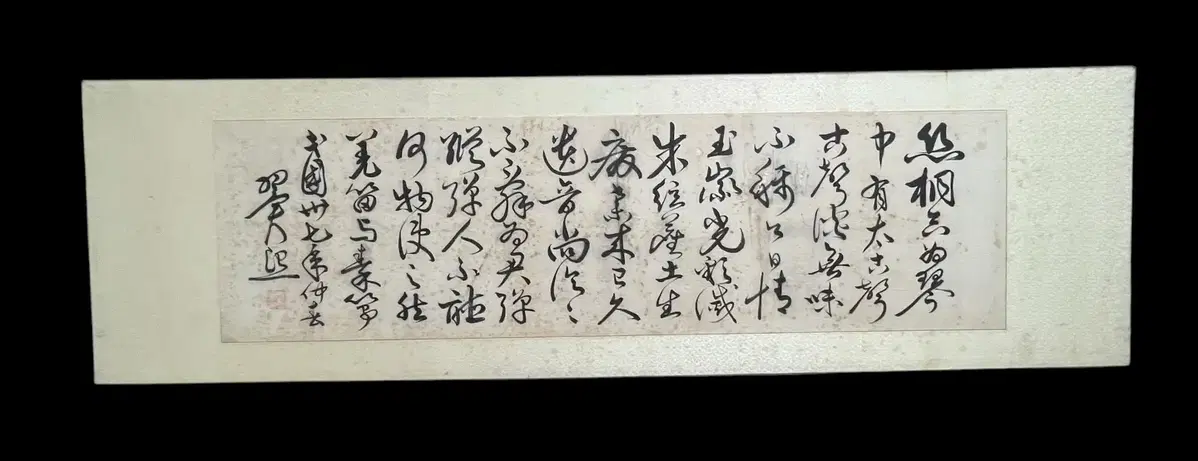 絲桐合为琴
中有太古聲
古聲澹無味
不稱今日情
玉徽光彩滅
朱絃塵土生
廢棄來已久
遺音尚泠泠
不辭为君彈
縱彈人不聽
何物使之然
羌笛与秦箏
民國卅七年仲春